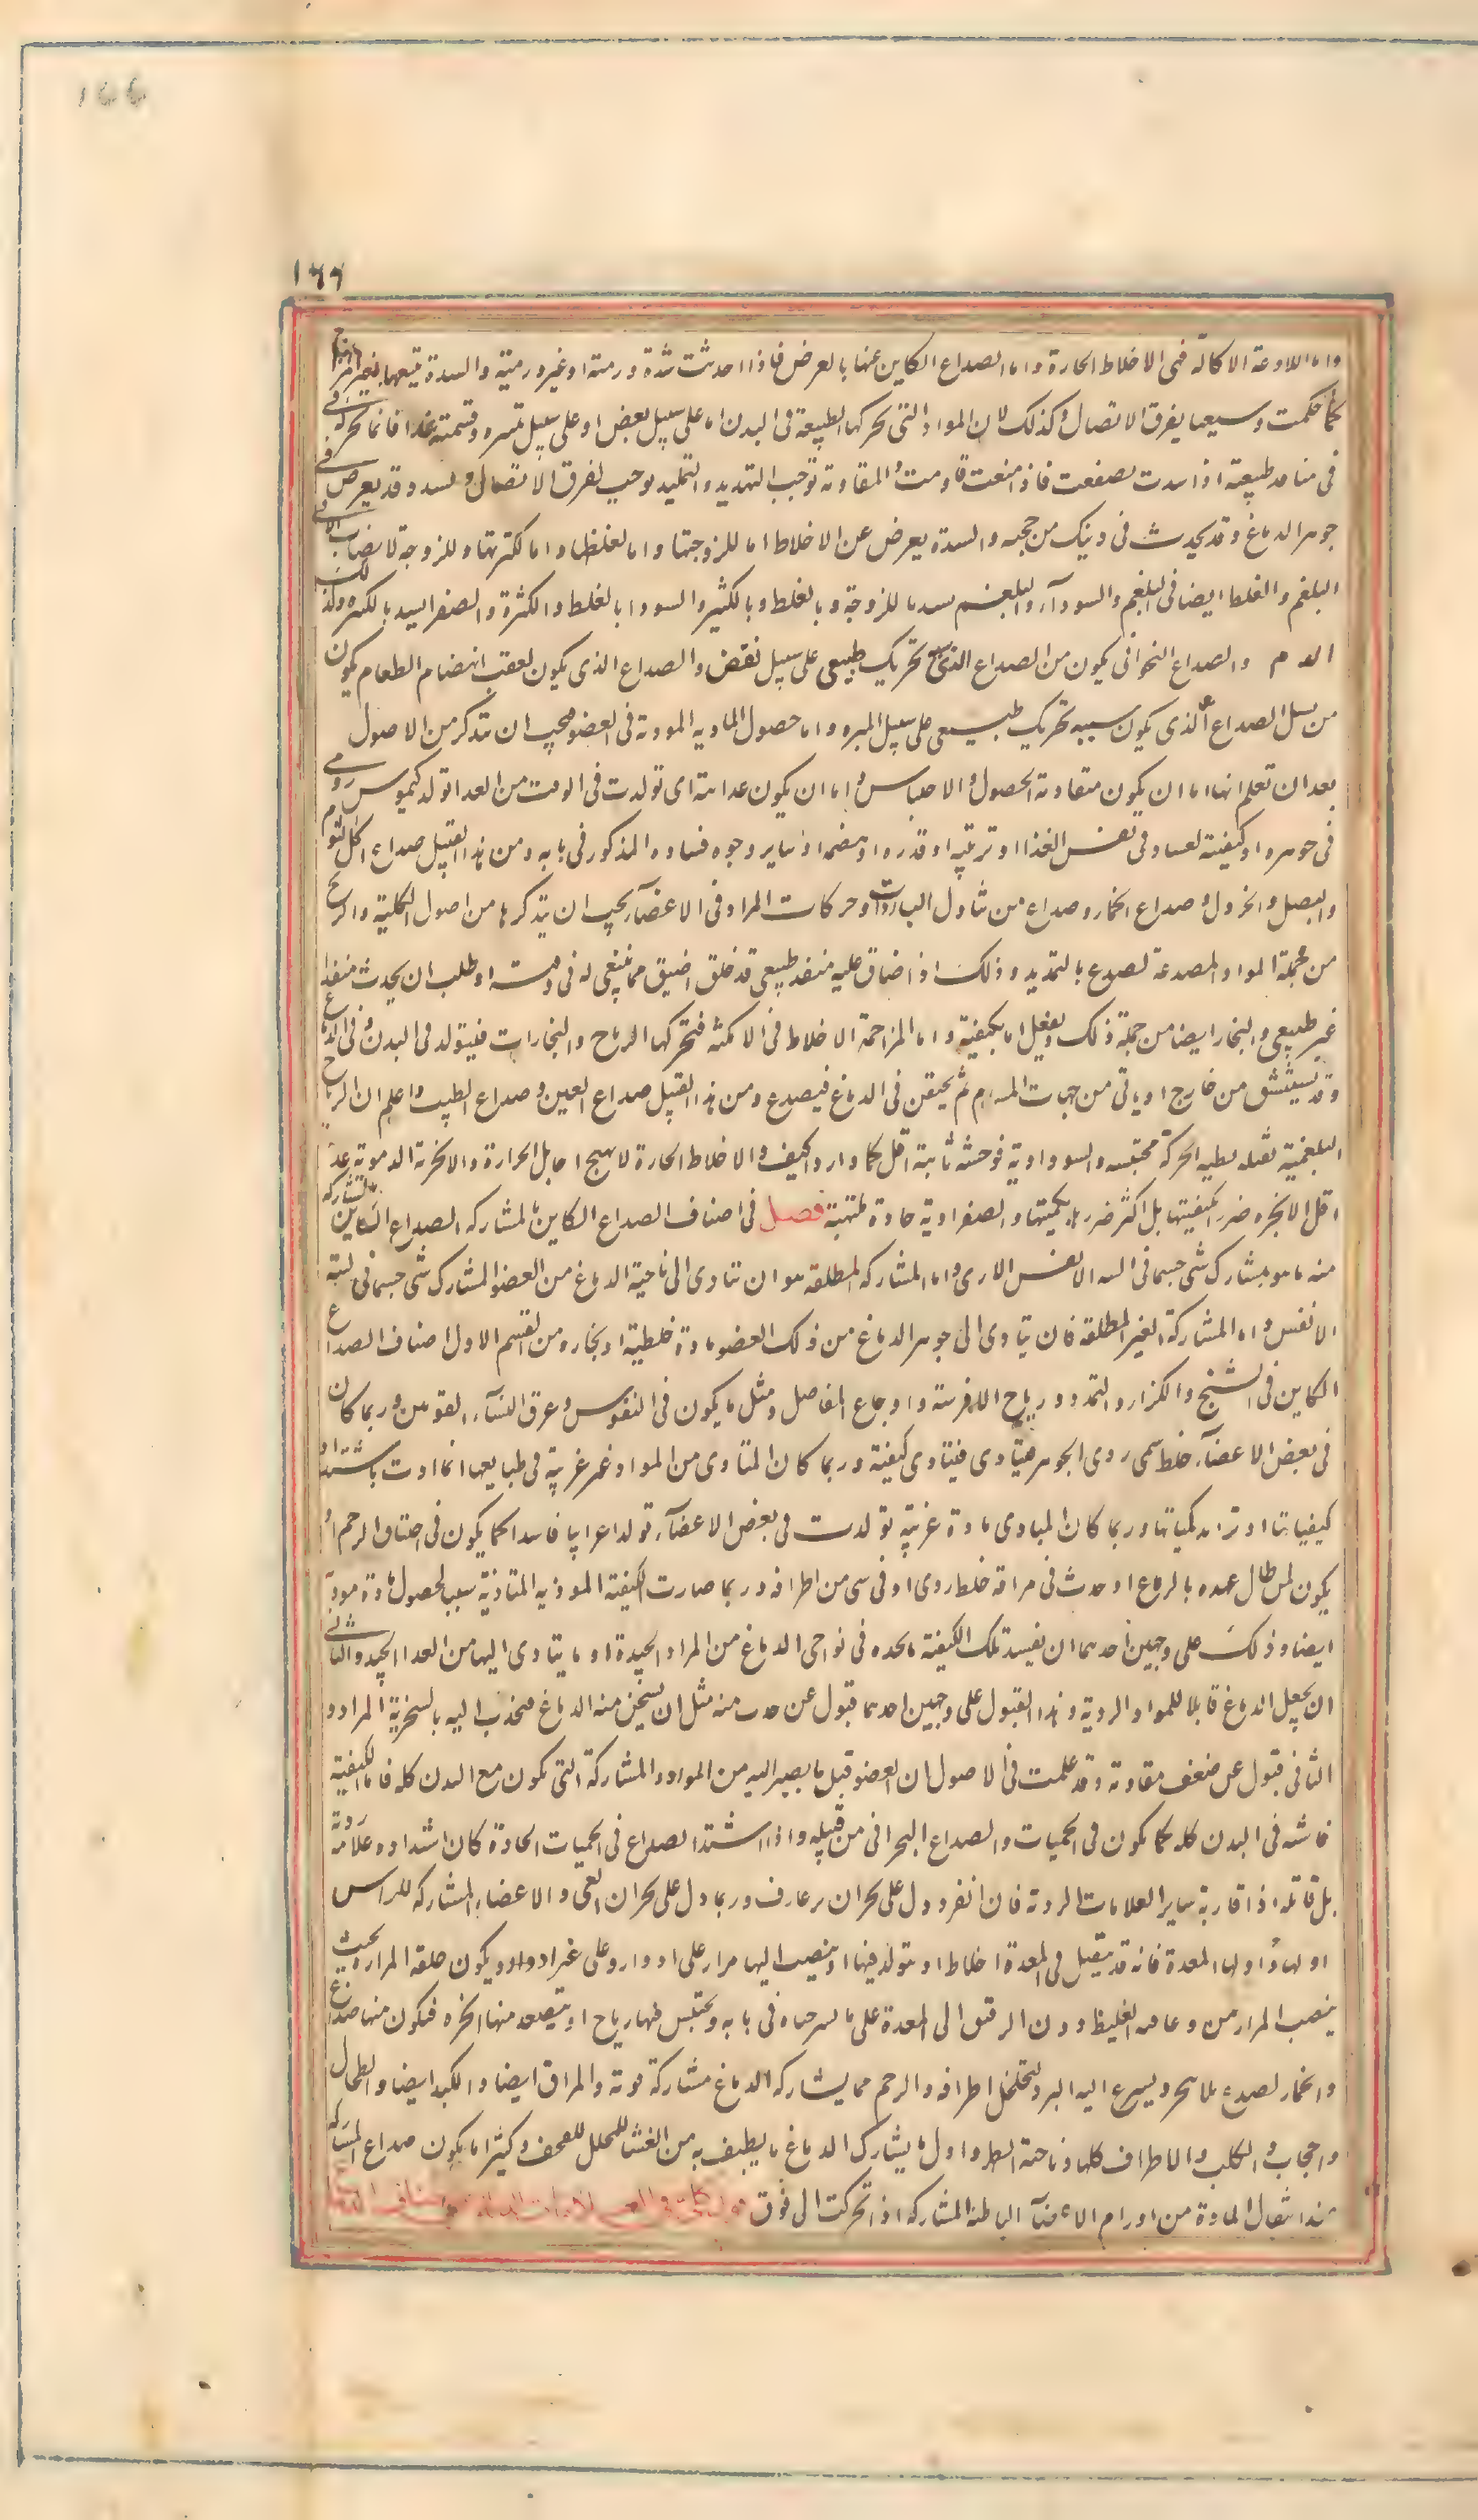 ١٦٦
واما اللاذعة الاكالة فهى الاخلاط الحارة واما الصداع الكاين عنها بالعرض فاذا احدثت سدة ورمية او غير ورمية والسدة يتبعها
كما علمت وسيعما يفرق الاتصال وكذلك لان المواد التى تحركها الطبيعة فى البدن اما على سبيل نفض او على سبيل تميز وقسمة غذا فانما تحركه
فى منافد طبيعية اذا سدت فاذا منعت قاومت والمقاومة توجب التمديد والتمديد يوجب تفرق الاتصال والسدد قد يعرض فى
جوهر الدماغ وقد يحدث فى ذينك من حجبه والسدة يعرض عن الاخلاط اما للزوجتها واما لغلظها واما لكثرتها واللزوجة لا يصاب الا فى
البلغم والغلظ ايضا فى البلغم والسودآء والبلغم يسد باللزوجة وبالغلظ وبالكثرة والسودا بالغلظ والكثرة والصفرا يسد بالكثرة وكذلك
الدم والصداع البحرانى يكون من الصداع الذى تحريك طبيعى على سبيل نفض والصداع الذى يكون لعقب انهضام الطعام يكون
من الصداع الذى يكون سببه تحريك طبيعى على سبيل التميز واما حصول المادية الموذية فى العضو فيجب ان تتذكر من الاصول
بعد ان تعلم انها اما ان يكون متقادمة الحصول والاحتباس واما ان يكون غذائية اى تولدت فى الوقت من الغذا تولد كيموس ردى
فى جوهره او كيفيته لفساد فى نفس الغذا او ترتيبه او قدره او هضمه او ساير وجوه فساده المذكور فى بابه ومن هذا القبيل صداع اكل الثوم
والبصل والخردل وصداع الخمار وصداع من تناول الباردات وحركات المواد فى الاعضآء يجب ان يتذكرها من اصول الكلية والريح
من جملة المواد المصدعة تصدع بالتمديد وذلك اذا ضاق عليه منفذ طبيعى قد خلق اضيق مما ينبغى له فى وقته او طلب ان يحدث منفذا
غير طبيعى والبخار ايضا من جملة ذلك ويفعل اما بكيفية واما المزاحمة الاخلاط فى الامكنه فتحركها الرياح والبخارات فيتولد فى البدن وفى الدماغ
وقد يستنشق من خارج او ياتى من جهات المسام ثم يحتقن فى الدماغ فيصدع ومن هذا القبيل صداع العين وصداع الطيب واعلم ان الرياح
البلغمية ثقيله بطيه الحركة محتبسه والسوداوية فوحشه ثابتة اقل كما واردا كيف والاخلاط الحارة لا يهيج رياحا بل الحرارة والابخرة الدموية عذبة
اقل الابخره ضرر بكيفيتها بل اكثر ضررها بكميتها والصفراوية حادة ملتهبة فصل فى اصناف الصداع الكاين بالمشاركه الصداع الكاين بالمشاركه
منه ما هو بمشارك شى جسمانى البتة الا نفس الاذى واما المشاركه المطلقه هو ان تتادى الى ناحية الدماغ من العضو المشارك شى جسمانى البتة
الا نفس واما المشاركة الغير المطلقة فان يتادى الى جوهر الدماغ من ذلك العضو مادة خلطية او بخاره ومن القسم الاول اصناف الصداع
الكاين فى التشنج والكزاز والتمدد ورياح الافرسة واوجاع المفاصل ومثل ما يكون فى النقرس وعرق النسآء القويين وربما كان
فى بعض الاعضآء خلط سمى ردى الجوهر فيتادى فيتادى كيفيتة وربما كان المتادى من المواد غير غريبة فى طباعها انما اذت باشتداد
كيفياتها او تزايد كمياتها وربما كان المتادى مادة غريبة تولدت فى بعض الاعضآء تولدا عرابيا فاسدا كما يكون فى اختناق الرحم او
يكون لمن طال عهده بالجماع او حدث فى مراقه خلط ردى او فى شى من اطرافه وربما صارت الكيفية الموذيه المتاذية سبب لحصول مادة موذية
ايضا وذلك على وجهين احدهما ان يفسد تلك الكيفية ما يجده فى نواحى الدماغ من المواد الجيدة او ما يتادى اليها من الغذا الجيد والثانى
ان يجعل الدماغ قابلا للمواد الردية وهذا القبول على وجهين احدهما قبول عن جذب منه مثل ان يسخن منه الدماغ فيجذب اليه بالسخونة المواد و
الثانى قبول عن ضعف مقاومة وقد علمت فى الاصول ان العضو قبل ما يصير اليه من المواد والمشاركة التى يكون مع البدن كله فاما لكيفية
فاشة فى البدن كله كما يكون فى الحميات والصداع البحرانى من قبيله واذا اشتد الصداع فى الحميات الحادة كان اشتداده علامة ردية
بل قاتلة اذا قاربة ساير العلامات الردية فان انفرد دل على بحران برعاف وربما دل على بحران القى والاعضاء المشاركه للراس
اولها واولها المعدة فانه قد يتقبل فى المعدة اخلاط او يتولد فيها او ينصب اليها مرار على ادوار وعلى غير ادوار ويكون خلقة المرارة بحيث
ينصب المرار من وعاءه الغليظ دون الرقيق الى المعدة على ما شرحناه فى بابه ويحتبس فيها رياح او يتصعد منها ابخره فيكون منها صداع
والخمار يصدع بالابخره ويسرع اليه البرد لتخلخل اطرافه والرحم مما يشاركه الدماغ مشاركة قوية والمراق ايضا والكبد ايضا والطحال
والحجاب والكلى والاطراف كلها وناحية الظهر واول ما يشارك الدماغ ما يطيف به من الغشا المجلل للقحف وكثيرا ما يكون صداع المشاركه
عند انتقال المادة من اورام الاعضآء الباطنة المشاركه اذا تحركت الى فوق